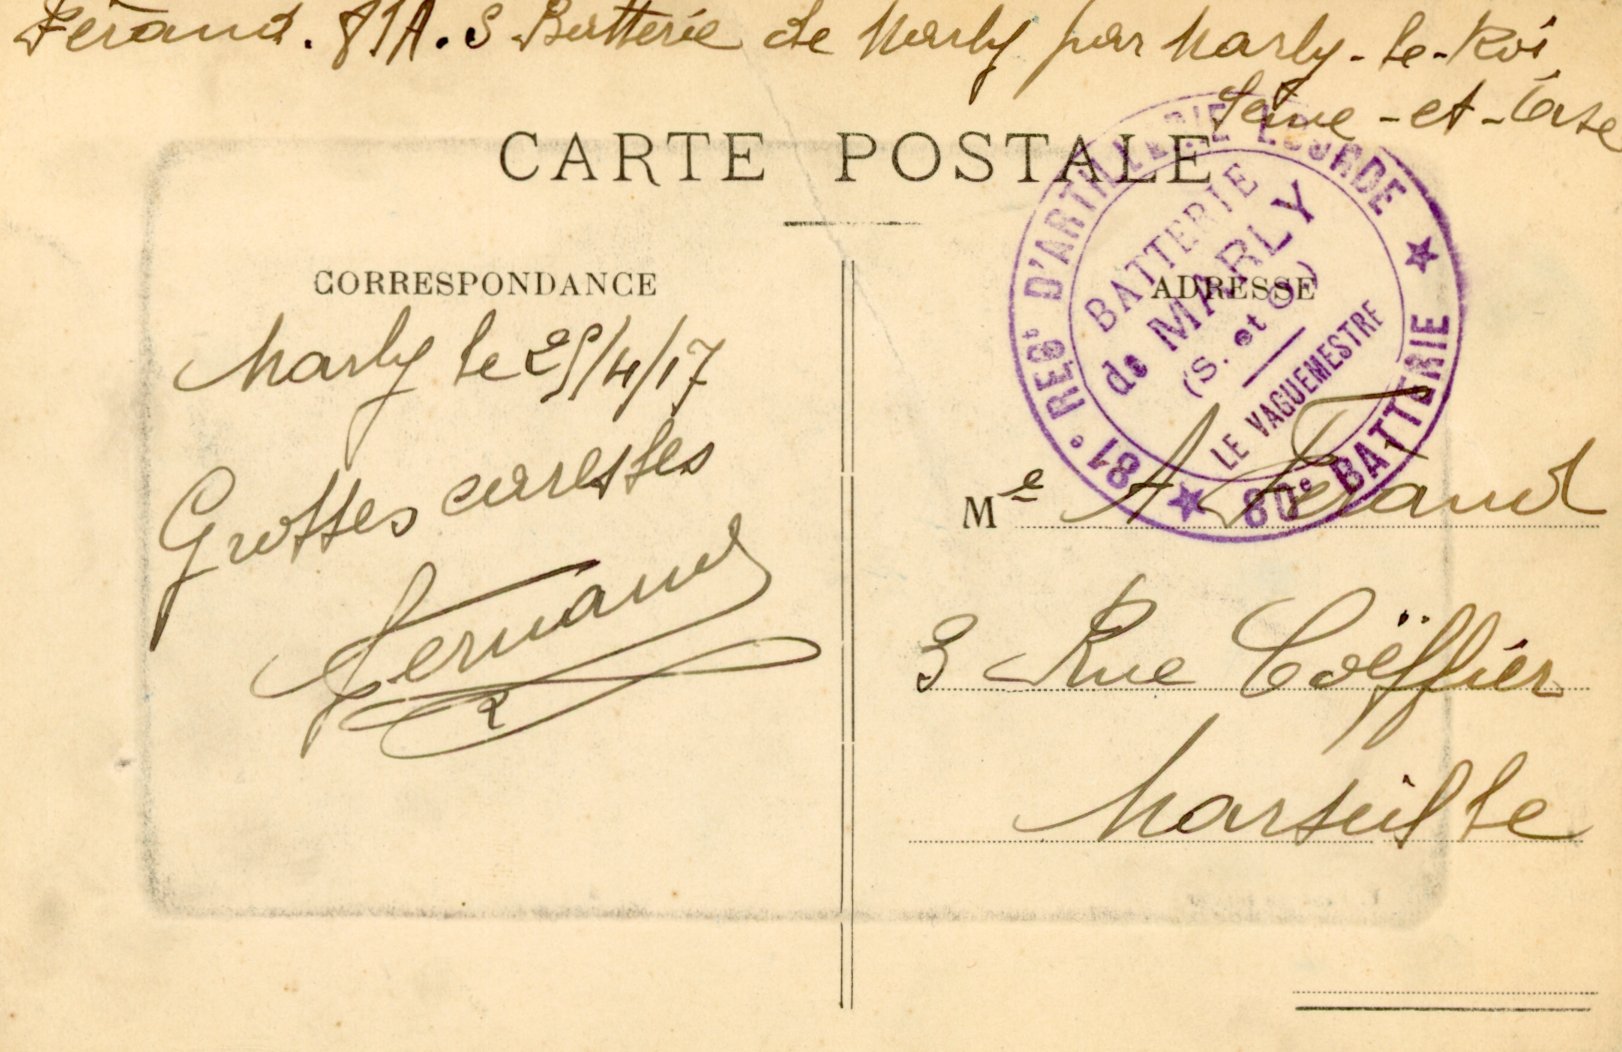 Férand. 81A. S Batterie de Marly par Marly-le-Roi
Seine-et-Oise
CARTE POSTALE
CORRESPONDANCE
Marly le 25/4/17
Grosses caresses
Fernand
ADRESSE
81e REGt D'ARTILLERIE LOURDE
80e BATTERIE
BATTERIE
de MARLY
(S. et O.)
LE VAGUEMESTRE
Me A Férand
3 Rue Coëffier
Marseille